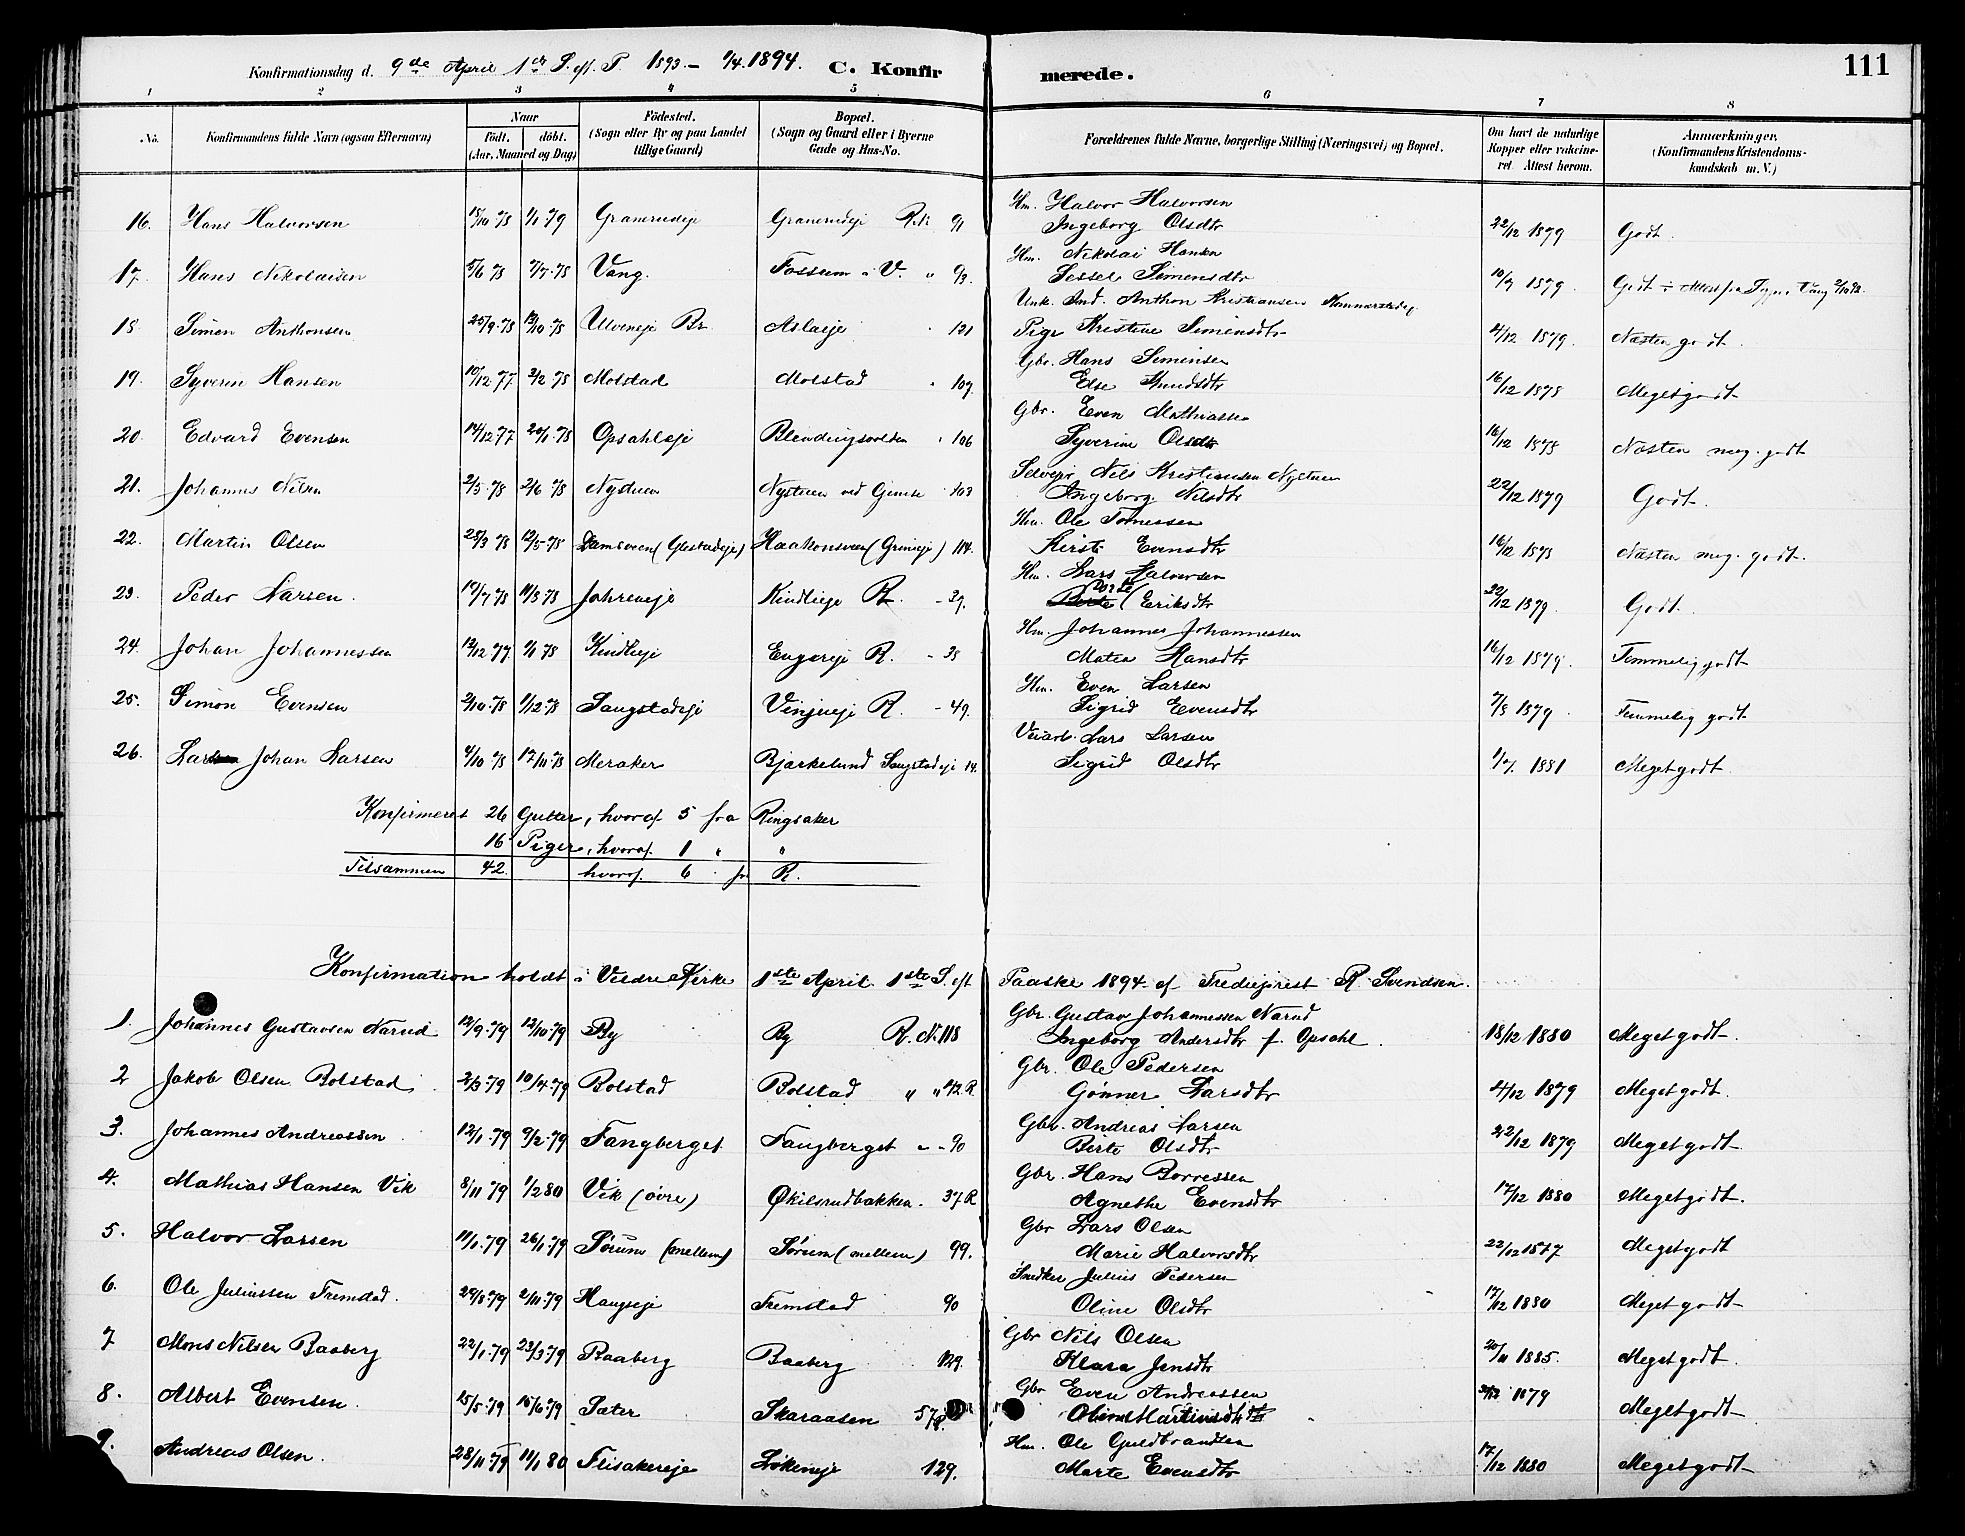 Konfirmationsdag d. 9de April 1ste S. eft. P. 1893. – 1/4. 1894. C. Konfirmerede. 111
1 2 3 4 5 6 7 8
No. Konfirmandens fulde Navn (ogsaa Efternavn) Naar Födt. döbt. (Aar, Maaned og Dag) Födested. (Sogn eller By og paa Landet tillige Gaard) Bopæl. (Sogn og Gaard eller i Byerne Gade og Hus-No. Forældrenes fulde Navne, borgerlige Stilling (Næringsvei) og Bopæl. Om havt de naturlige Kopper eller vakcineret Attest herom. Anmærkninger. (Konfirmandens Kristendomskundskab m.V.)
16. Hans Halvorsen 1/1 79 Granerudeje Granerudeje R. 91 Hm. Halvor Halvorsen
Ingeborg Olsdtr 22/12 1879 Godt.
17. Hans Nikolaisen 7/7 78 Vang. Fossum i V. " 93. Hm. Nikolai Hansen
Sessel Simensdtr 10/9 1879. Godt
18. Simen Anthonsen 25/9 78 13/10 78 Ulvenseje Br. Aslaeje 121 Unk. Ind. Anthon Kristiansen
Pige Kristine Simensdtr 4/12 1879. Næsten godt.
19. Syverin Hansen 10/12 77 2/2 78 Molstad Molstad " 109. Gbr. Hans Simensen
Else Knudsdtr 16/12 1878 Meget godt
20. Edvard Evensen 14/12 77 20/1 78 Opsahleje Blendingsvolden " 106 Gbr. Even Mathiassen
Syverine Olsdtr 16/12 1878 Næsten meg. godt
21. Johannes Nilsen 2/5 78 2/6 78 Nystuen Nystuen ved Gjuvse 103 Selvejer Nils Kristiansen Nystuen
Ingeborg Nilsdtr 22/12 1879 Godt.
22. Martin Olsen 25/3 78 12/5 78 Damsveen (Glestadeje) Haakonsveen (Grineje) 114. Hm. Ole Tomessen
Kirsti Evensdtr 16/12 1878 Næsten meg. godt.
23. Peder Larsen. 19/7 78 11/8 78 Jahreneje Kindlieje R. – 37. Hm. Lars Halvorsen
Dorte Eriksdtr 22/12 1879. Godt.
24. Johan Johannessen 12/12 77 1/1 78 Kindlieje Engereje R. – 38 Hm. Johannes Johannessen
Matea Hansdtr 16/12 1879. Temmelig godt
25. Simon Evensen 2/10 78 1/12 78 Saugstadeje Vinjueje R. – 49. Hm. Even Larsen
Sigrid Evensdtr 7/8 1879 Temmelig godt
26. Lars Johan Larsen 4/10 78 17/11 78 Meraker Bjærkelund Saugstadeje 14. Veiarb. Lars Larsen
Sigrid Olsdtr 1/7 1881 Meget godt
Konfirmeret 26 Gutter, hvoraf 5 fra Ringsaker
16 Piger, hvoraf. 1 " "
Tilsammen 42. hvoraf. 6 fra R.
Konfirmation holdt i Veldre Kirke 1ste April. 1ste S. eft Paaske 1894 af Tredieprest R. Svendsen.
1. Johannes Gustavsen Narud 12/9 79 12/10 79 By By R. N. 118 Gbr. Gustav Johannessen Narud
Ingeborg Andersdtr f. Opsahl. 18/12 1880 Meget godt.
2 Jakob Olsen Bolstad 2/3 79 10/4 79 Bolstad Bolstad " " 42 R Gbr. Ole Pedersen
Gønner Larsdtr 4/12 1879 Meget godt.
3. Johannes Andreassen 12/1 79 9/2 79 Fangberget Fangberget " – 90 Gbr. Andreas Larsen
Birte Olsdtr 22/12 1879 Meget godt
4. Mathias Hansen Vik 8/11 79 1/2 80 Vik (øvre) Økilsrudbakken. 37 R Gbr. Hans Borressen
Agnethe Evensdtr 17/12 1880 Meget godt.
5. Halvor Larsen 11/1 79 26/1 79 Sørum (mellem) Sørum (mellem) 99. Gbr Lars Olsen
Marie Halvorsdtr 22/12 1877 Meget godt
6. Ole Juliussen Fremstad. 29/8 79 2/11 79 Haugseje Fremstad 90 Snedker Julius Pedersen
Oline Olsdtr 17/12 1880 Meget godt
7 Mons Nilsen Baaberg 22/1 79 23/3 79 Baaberg Baaberg 129. Gbr Nils Olsen
Klara Jensdtr 20/11 1885. Meget godt.
8. Albert Evensen. 15/5 79 15/6 79 Sæter Skaraasen 57 Gbr Even Andreassen
Oline Martinsdtr 1879 Meget godt.
9. Andreas Olsen. 28/11 79 11/1 80 Flisakereje Løkeneje 129. Hm. Ole Guldbrandsen
Marte Evensdtr 17/12 1880 Meget godt